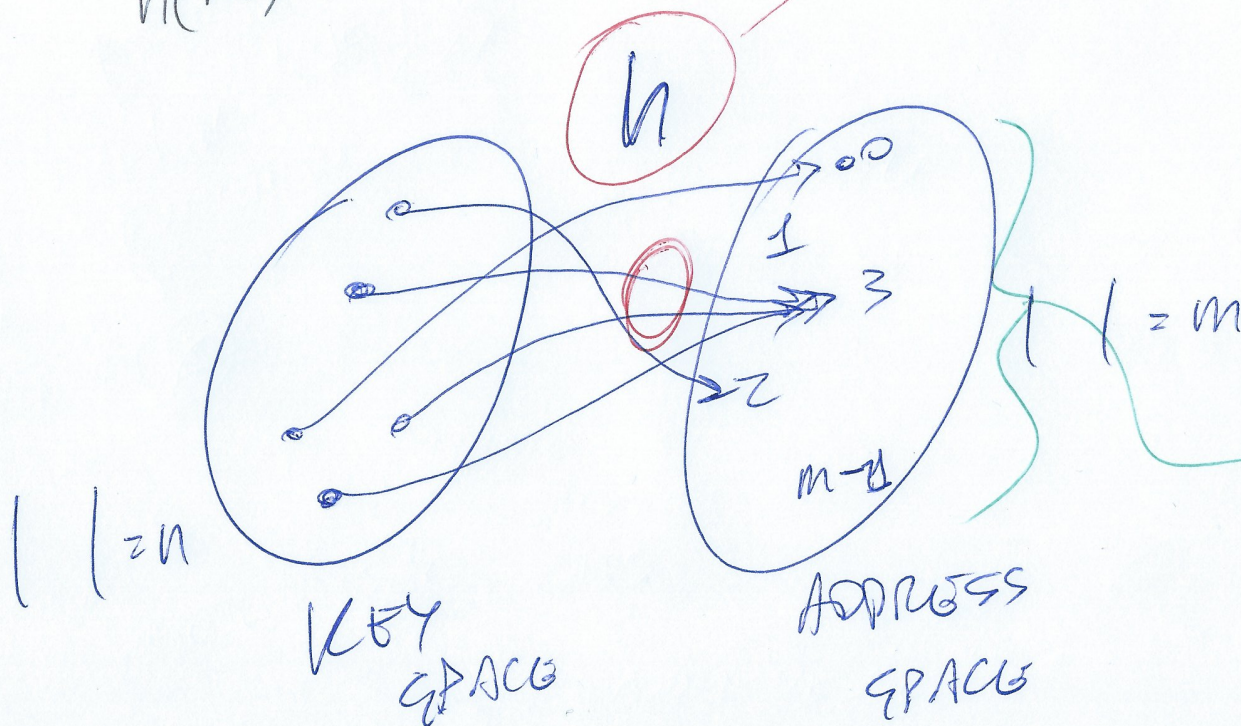 h
0
1
3
2
m-1
| | = m
| | = n
KEY
SPACE
ADDRESS
SPACE